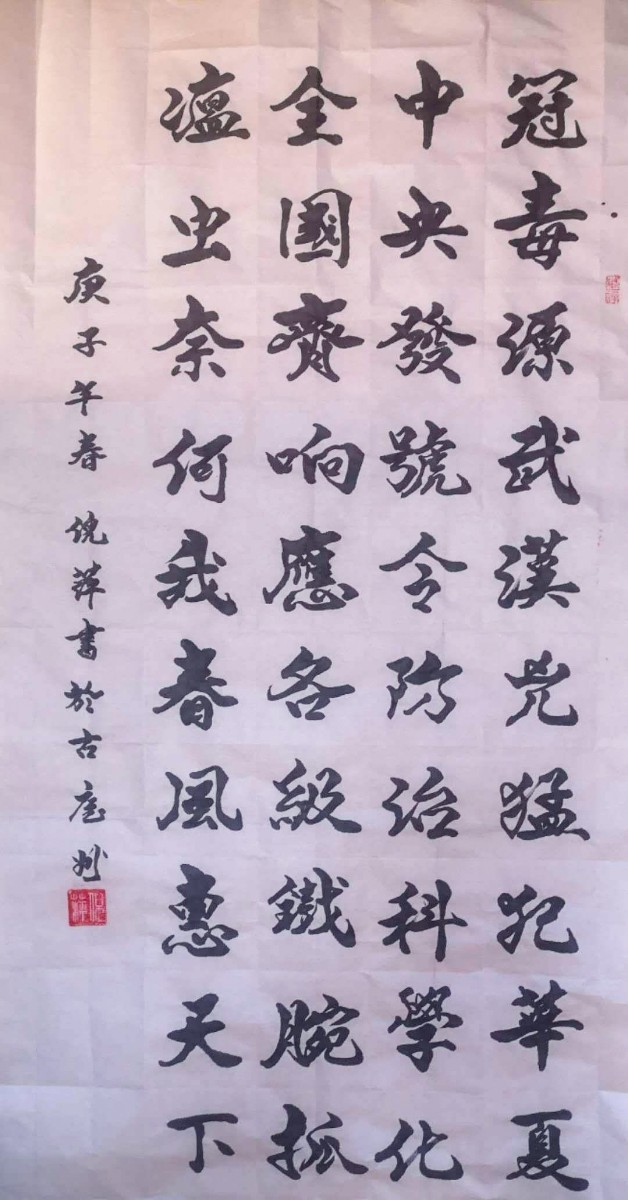 冠毒源武漢兇猛犯華夏
中央發號令防治科學化
全國齊响應各級鐵腕抓
瘟虫奈何我春風惠天下
庚子年春倪萍書於古庐州